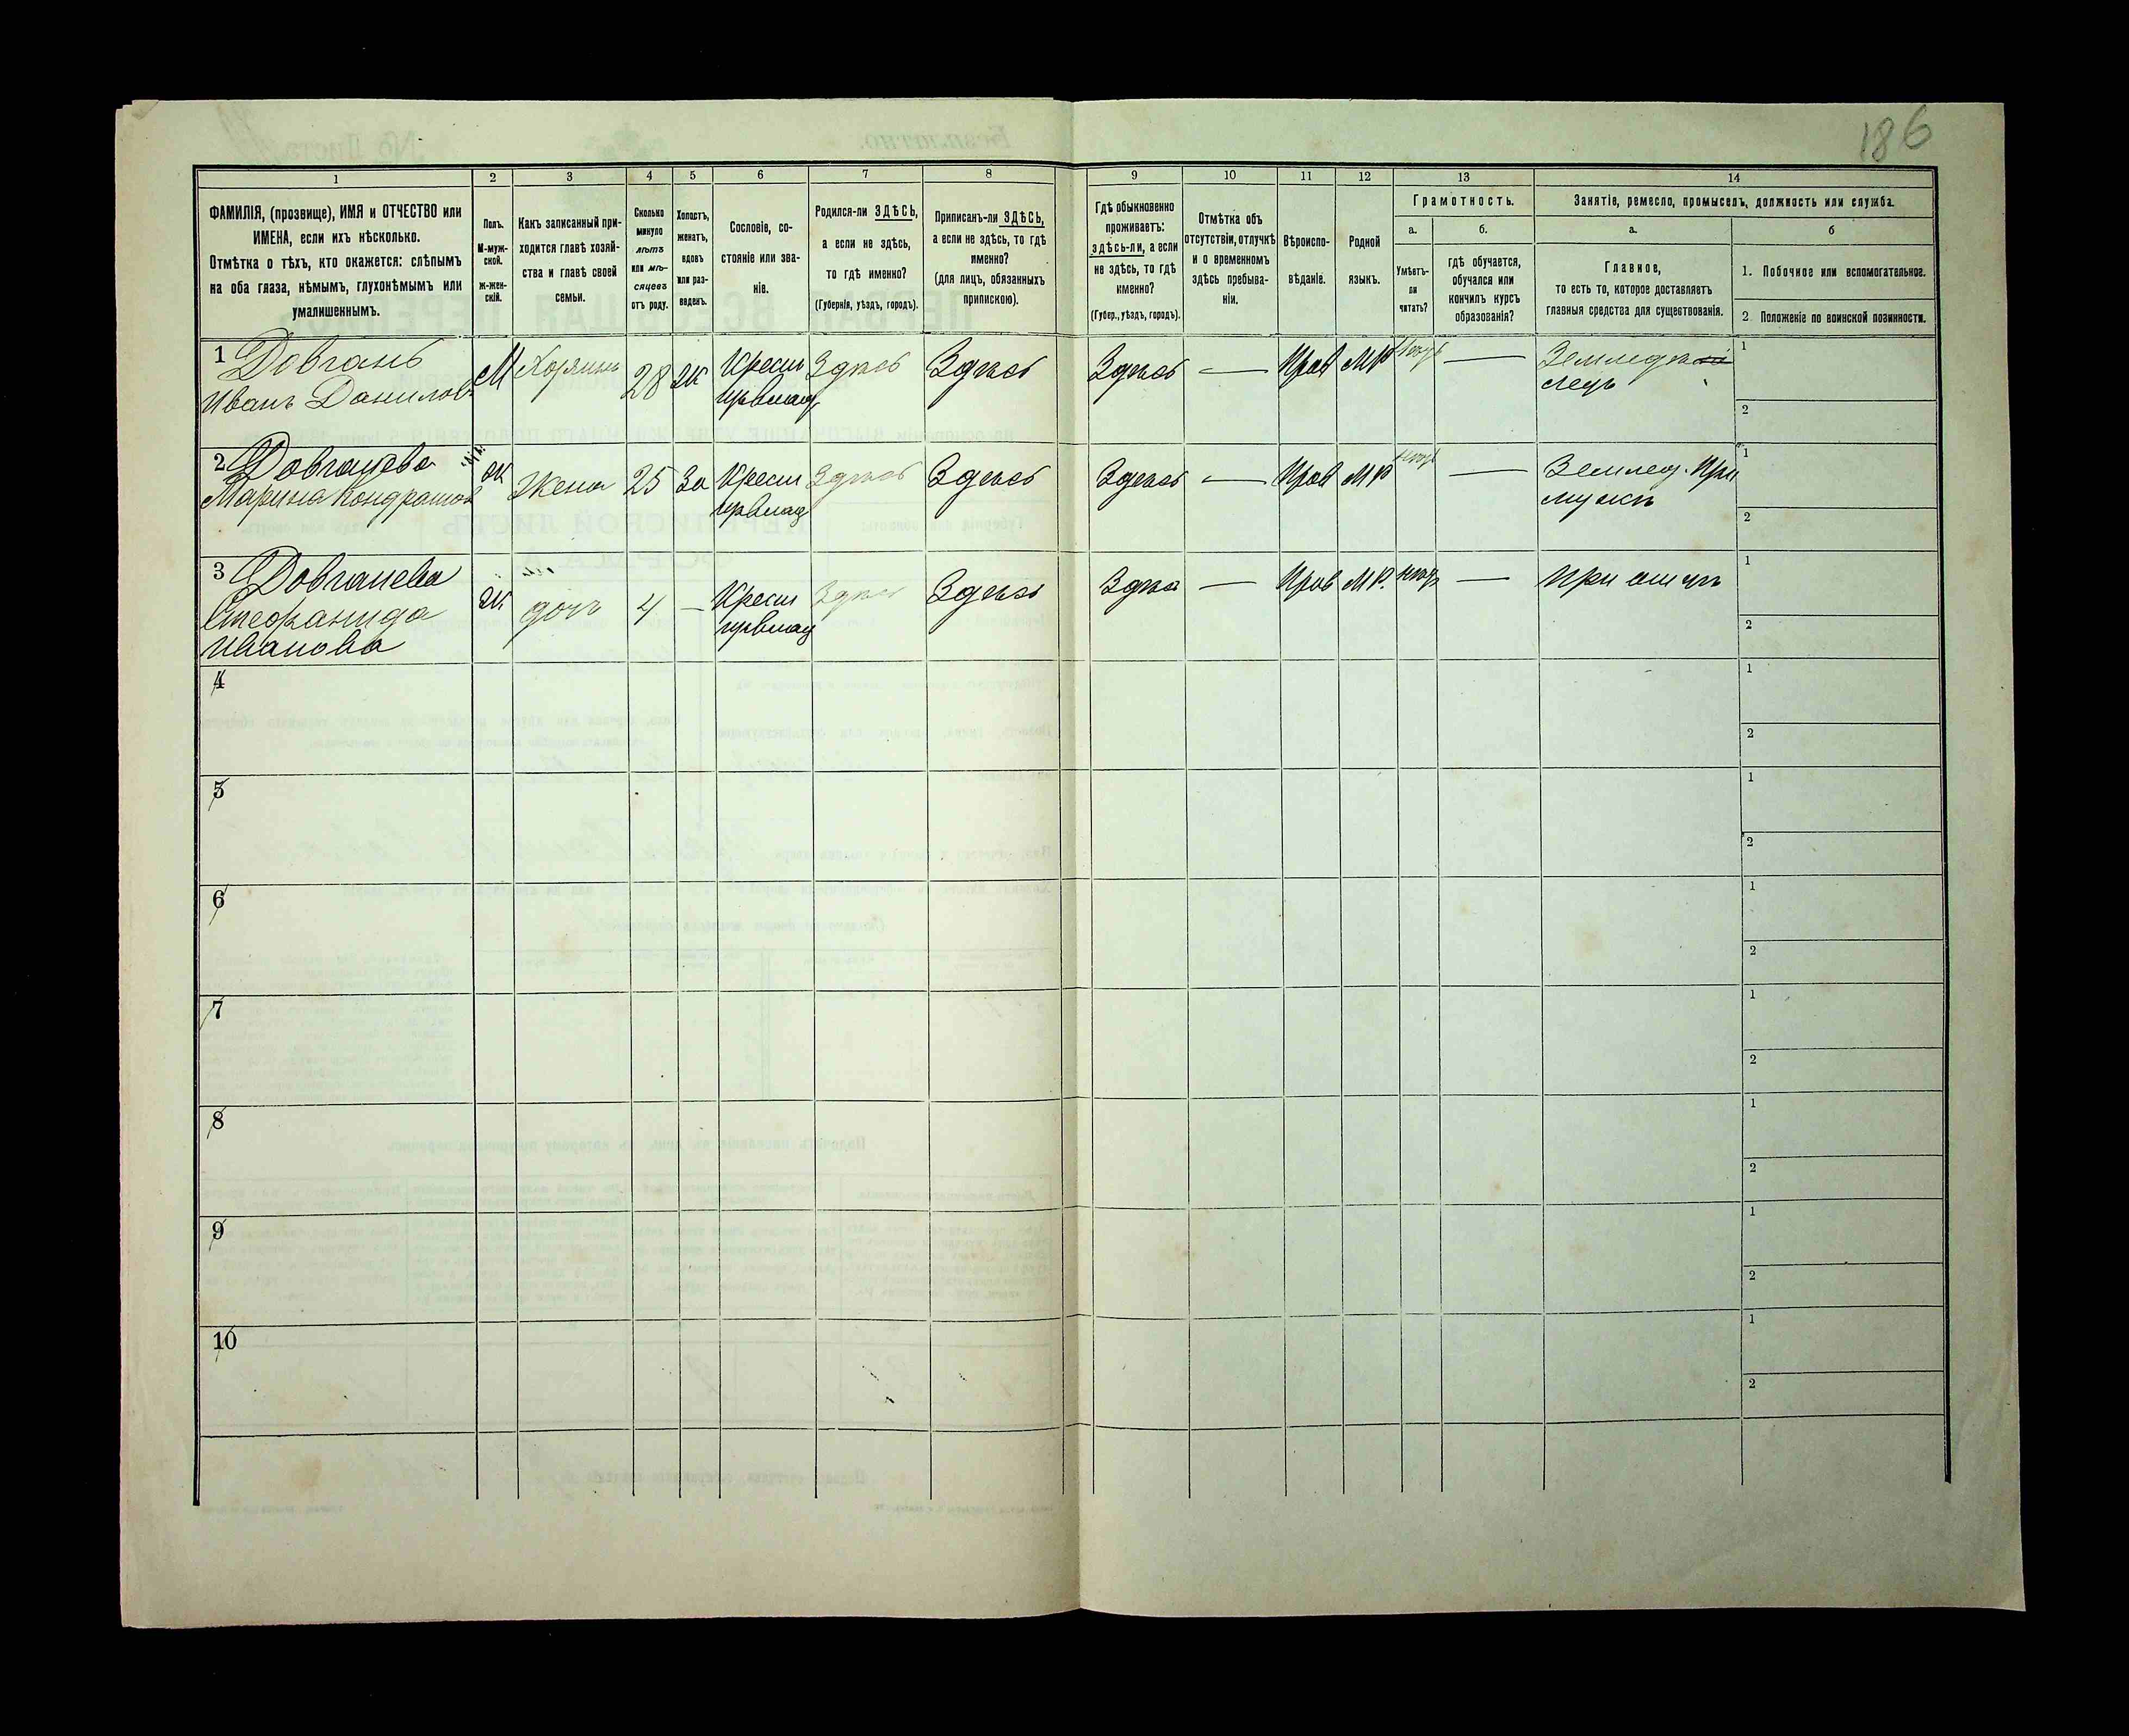 186
1 2 3 4 5 6 7 8 9 10 11 12 13 14
ФАМИЛІЯ, (прозвище), ИМЯ и ОТЧЕСТВО или
ИМЕНА, если ихъ нѣсколько.
Отмѣтка о тѣхъ, кто окажется: слѣпымъ
на оба глаза, нѣмымъ, глухонѣмымъ или
умалишеннымъ.
Полъ.
М-муж-
ской.
ж-жен-
скій.
Какъ записанный при-
ходится главѣ хозяй-
ства и главѣ своей
семьи.
Сколько
минуло
лѣтъ
или мѣ-
сяцевъ
отъ роду.
Холостъ,
женатъ,
вдовъ
или раз-
веденъ.
Сословіе, со-
стояніе или зва-
ніе.
Родился-ли ЗДѢСЬ,
а если не здѣсь,
то гдѣ именно?
(Губернія, уѣздъ, городъ).
Приписанъ-ли ЗДѢСЬ,
а если не здѣсь, то гдѣ
именно?
(для лицъ, обязанныхъ
припискою).
Гдѣ обыкновенно
проживаетъ:
здѣсь-ли, а если
не здѣсь, то гдѣ
именно?
(Губер., уѣздъ, городъ).
Отмѣтка объ
отсутствіи, отлучкѣ
и о временномъ
здѣсь пребыва-
ніи.
Вѣроиспо-
вѣданіе.
Родной
языкъ.
Грамотность.
а.
Умѣетъ-
ли
читать?
б.
гдѣ обучается,
обучался или
кончилъ курсъ
образованія?
Занятіе, ремесло, промыселъ, должность или служба.
а.
Главное,
то есть то, которое доставляетъ
главныя средства для существованія.
б
1. Побочное или вспомогательное.
2 Положеніе по воинской повинности.
1 Довгань
Иванъ Данилов
М Хозяинъ 28 ж
Крест
Здѣсь Здѣсь Здѣсь — Прав МР — 
1
2
2 Довганева
Марина Кондратов
ж Жена 25 За Крест
Здѣсь Здѣсь Здѣсь — Прав МР — Землед. При
мужѣ
1
2
3 Довганева
Стефанида
Иванова
ж дочь 4 — Крест
Здѣсь Здѣсь Здѣсь — Прав МР. — При отцѣ
1
2
4 1
2
5 1
2
6 1
2
7 1
2
8 1
2
9 1
2
10 1
2